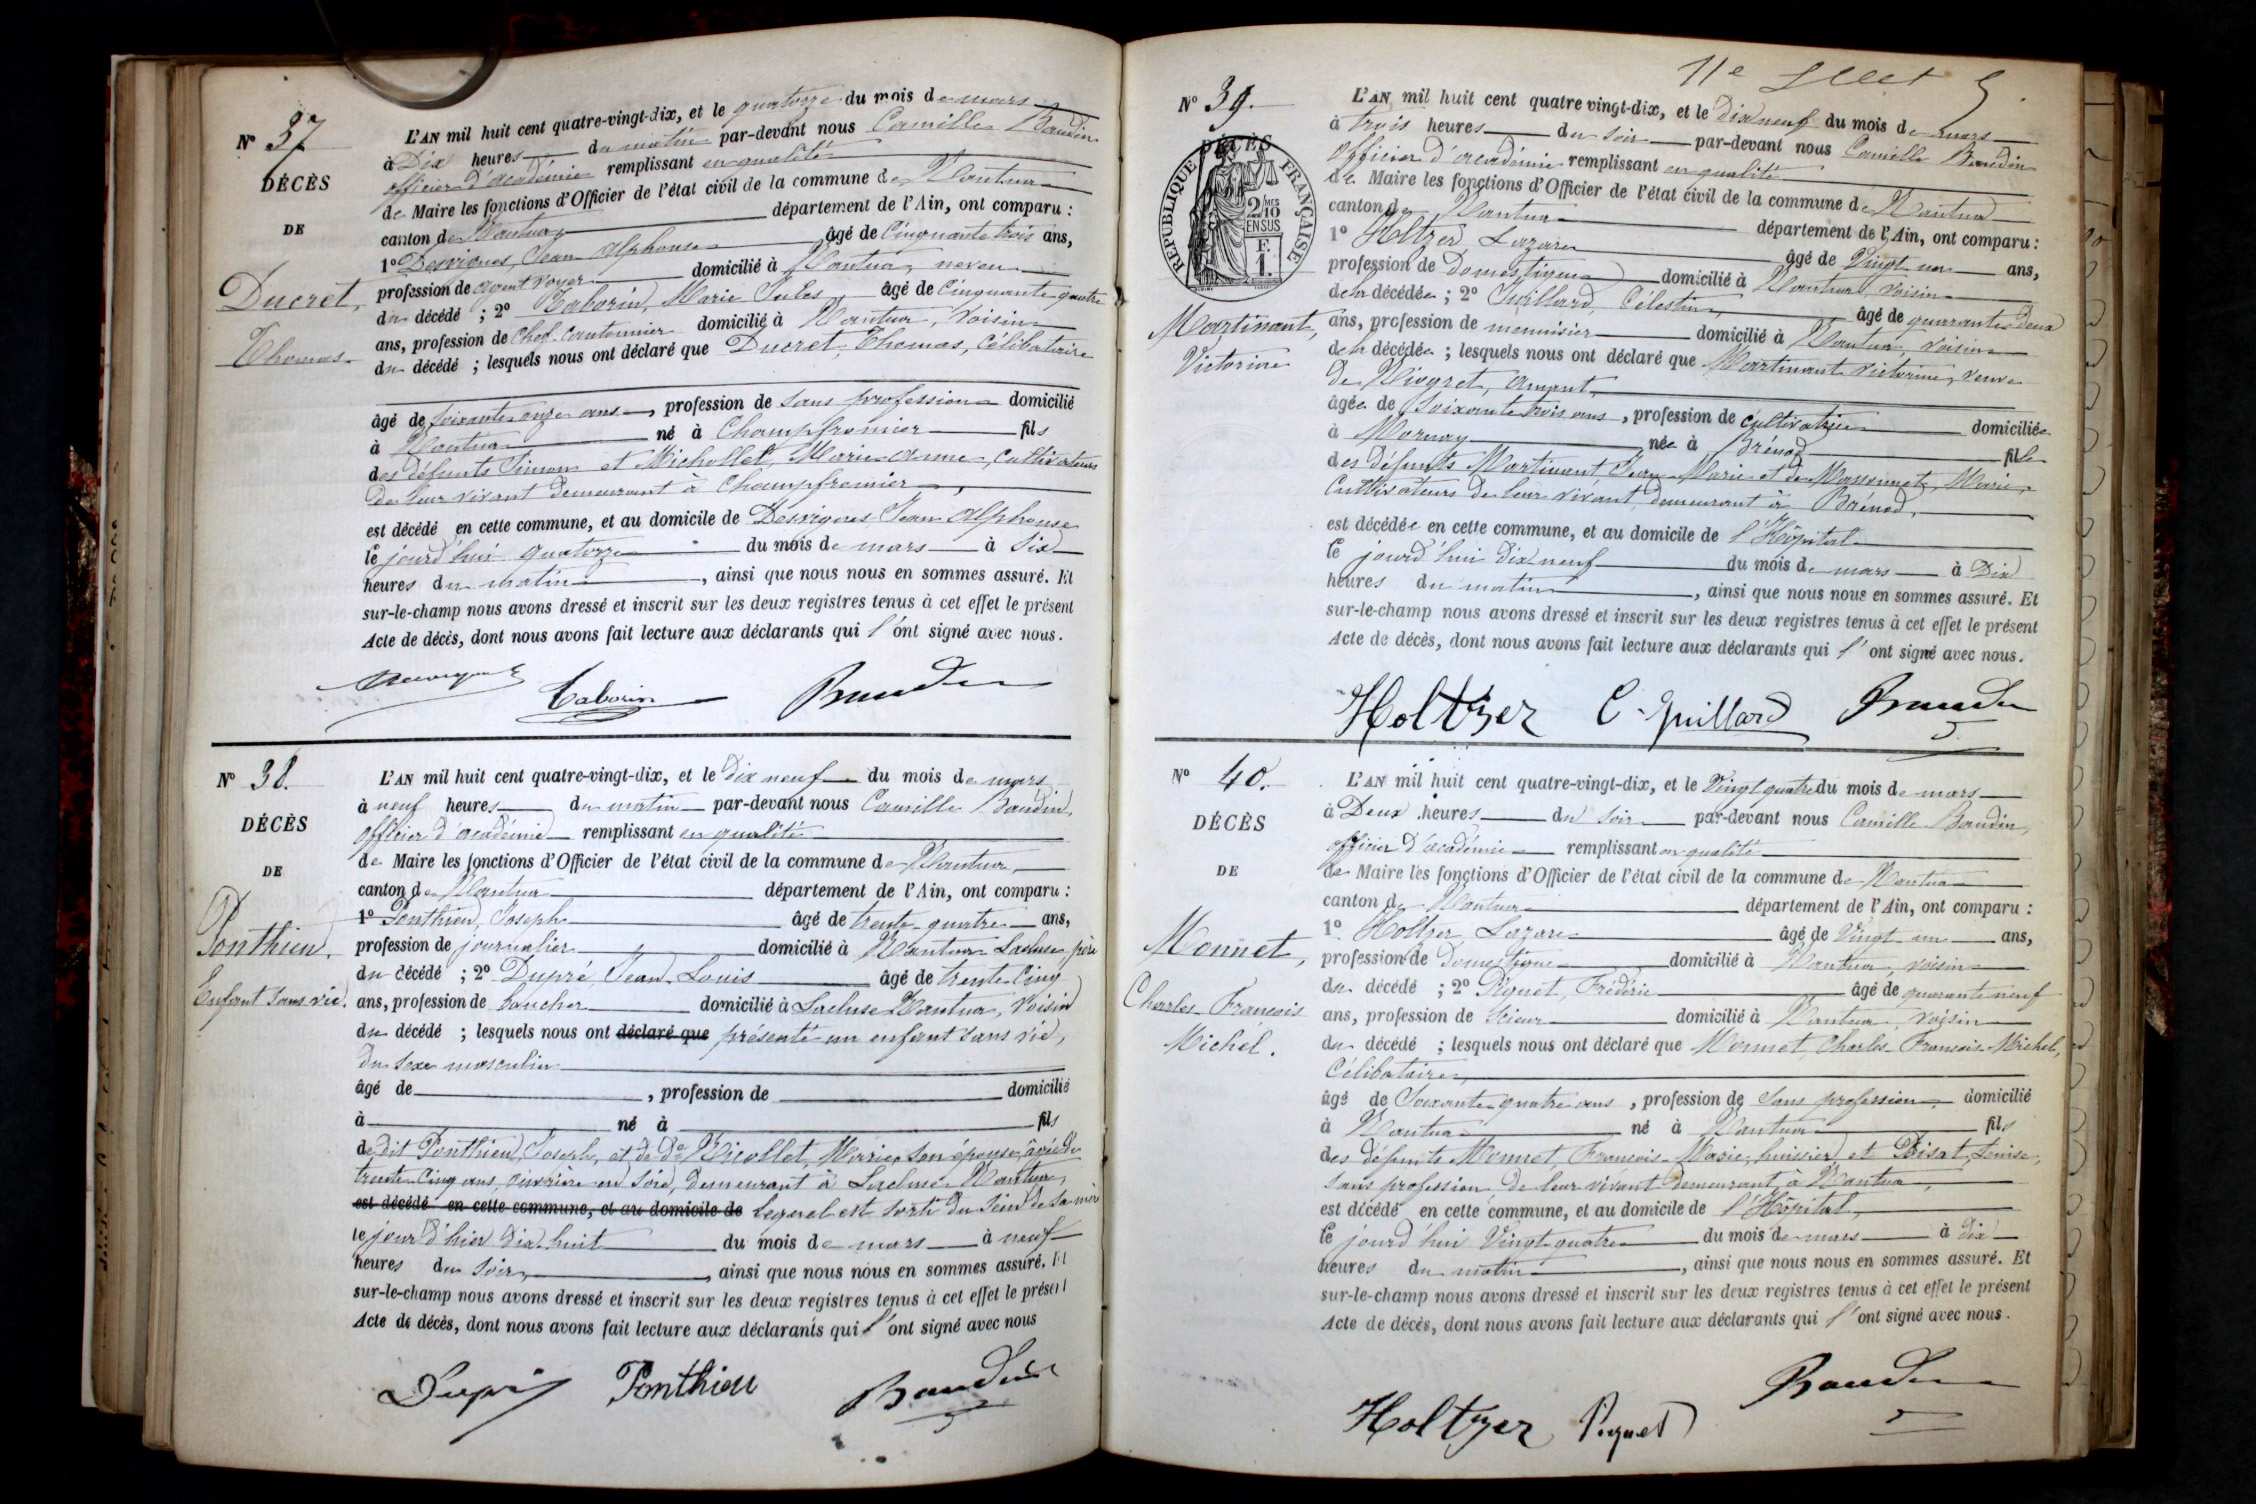 N° 37
DÉCÈS
DE
Ducret,
Thomas
L'AN mil huit cent quatre-vingt-dix, et le quatorze du mois de mars
à Dix heures du matin par-devant nous Camille Baudin
officier d'académie remplissant en qualité
de Maire les fonctions d'Officier de l'état civil de la commune de Nantua
canton de Nantua département de l'Ain, ont comparu :
1° Desvignes, Jean Alphonse âgé de Cinquante trois ans,
profession de agent voyer domicilié à Nantua, neveu
du décédé ; 2° Taborin, Marie Jules âgé de Cinquante quatre
ans, profession de Chef Cantonnier domicilié à Nantua, voisin
du décédé ; lesquels nous ont déclaré que Ducret, Thomas, Célibataire
âgé de soixante onze ans, profession de sans profession domicilié
à Nantua né à Champfromier fils
des défunts Simon et Michollet, Marie Anne, Cultivateurs
de leur vivant demeurant à Champfromier,
est décédé en cette commune, et au domicile de Desvignes Jean Alphonse
le jourd'hui quatorze du mois de mars à Six
heures du matin, ainsi que nous nous en sommes assuré. Et
sur-le-champ nous avons dressé et inscrit sur les deux registres tenus à cet effet le présent
Acte de décès, dont nous avons fait lecture aux déclarants qui l'ont signé avec nous.
Taborin Baudin
N° 38.
DÉCÈS
DE
Ponthieu.
Enfant sans vie.
L'AN mil huit cent quatre-vingt-dix, et le dix neuf du mois de mars
à neuf heures du matin par-devant nous Camille Baudin,
officier d'académie remplissant en qualité
de Maire les fonctions d'Officier de l'état civil de la commune de Nantua,
canton de Nantua département de l'Ain, ont comparu :
1° Ponthieu, Joseph âgé de trente quatre ans,
profession de journalier domicilié à Nantua Lacluse père
du décédé ; 2° Dupré, Jean Louis âgé de trente Cinq
ans, profession de boucher domicilié à Lacluse Nantua, voisin
du décédé ; lesquels nous ont déclaré que présenté un enfant sans vie,
du sexe masculin
âgé de , profession de domicilié
à né à fils
de dit Ponthieu, Joseph, et de De Nicollet, Marie, son épouse, âgée de
trente Cinq ans, ouvrière en soie, demeurant à Lacluse Nantua,
est décédé en cette commune, et au domicile de lequel est sorti du sein de sa mère
le jour d'hier dix huit du mois de mars à neuf
heures du soir, ainsi que nous nous en sommes assuré. Et
sur-le-champ nous avons dressé et inscrit sur les deux registres tenus à cet effet le présent
Acte de décès, dont nous avons fait lecture aux déclarants qui l'ont signé avec nous
Dupré Ponthieu Baudin
11e 5
N° 39.
DÉCÈS
RÉPUBLIQUE FRANÇAISE
2/MES
10
EN SUS
F.
1.
Martinant,
Victorine
L'AN mil huit cent quatre vingt-dix, et le Dix neuf du mois de mars
à trois heures du soir par-devant nous Camille Baudin
Officier d'académie remplissant en qualité
de Maire les fonctions d'Officier de l'état civil de la commune de Nantua
canton de Nantua département de l'Ain, ont comparu :
1° Holtzer Lazare âgé de Vingt un ans,
profession de domestique domicilié à Nantua, voisin
de la décédée ; 2° Juillard, Célestin, âgé de quarante deux
ans, profession de menuisier domicilié à Nantua, voisin
de la décédée ; lesquels nous ont déclaré que Martinant Victorine, veuve
de Niogret, Amant,
âgée de Soixante trois ans, profession de cultivatrice domiciliée
à Mornay née à Brénod fille
des défunts Martinant, Jean Marie et de Massonnet, Marie,
Cultivateurs de leur vivant, demeurant à Brénod,
est décédée en cette commune, et au domicile de l'Hôpital
le jourd'hui dix neuf du mois de mars à Dix
heures du matin, ainsi que nous nous en sommes assuré. Et
sur-le-champ nous avons dressé et inscrit sur les deux registres tenus à cet effet le présent
Acte de décès, dont nous avons fait lecture aux déclarants qui l'ont signé avec nous.
Holtzer C. Juillard Baudin
N° 40.
DÉCÈS
DE
Monnet,
Charles François
Michel.
L'AN mil huit cent quatre-vingt-dix, et le Vingt quatre du mois de mars
à Deux heures du soir par-devant nous Camille Baudin,
officier d'académie remplissant en qualité
de Maire les fonctions d'Officier de l'état civil de la commune de Nantua
canton de Nantua département de l'Ain, ont comparu :
1° Holtzer Lazare âgé de Vingt un ans,
profession de domestique domicilié à Nantua, voisin
du décédé ; 2° Piquet, Frédéric âgé de quarante neuf
ans, profession de Scieur domicilié à Nantua, voisin
du décédé ; lesquels nous ont déclaré que Monnet, Charles François Michel,
Célibataire,
âgé de Soixante quatre ans, profession de Sans profession, domicilié
à Nantua né à Nantua fils
des défunts Monnet, François Marie, huissier et Poisat, Louise,
sans profession, de leur vivant demeurant à Nantua,
est décédé en cette commune, et au domicile de l'Hôpital,
le jourd'hui Vingt quatre du mois de mars à dix
heures du matin, ainsi que nous nous en sommes assuré. Et
sur-le-champ nous avons dressé et inscrit sur les deux registres tenus à cet effet le présent
Acte de décès, dont nous avons fait lecture aux déclarants qui l'ont signé avec nous.
Holtzer Piquet Baudin